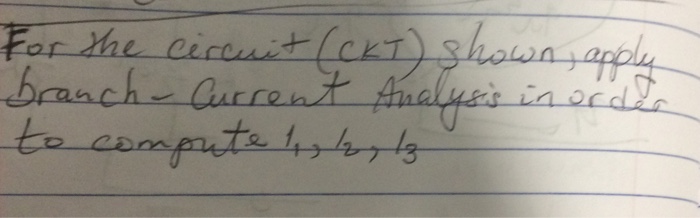 For the circuit (CKT) shown, apply
branch - Current Analysis in order
to compute I1, I2, I3